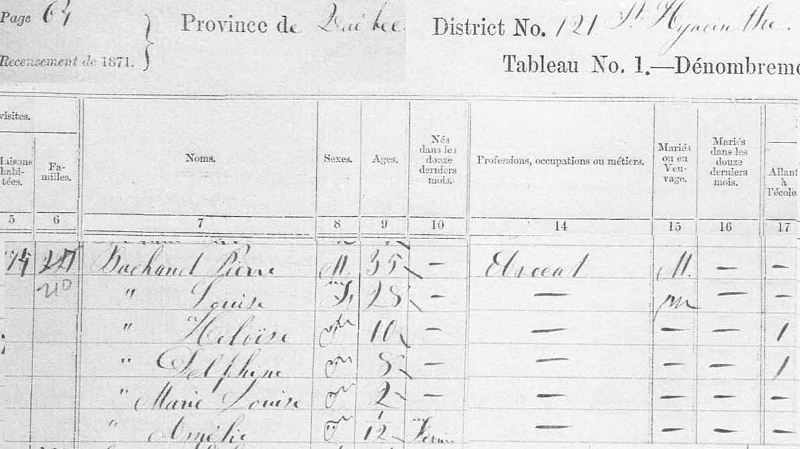 Page 64
Province de Québec District No. 121 St. Hyacinthe.
Recensement de 1871.
Tableau No. 1.—Dénombreme
visites.
Maisons habi- tées. Fa- milles. Noms. Sexes. Ages. Nés dans les douze derniers mois. Professions, occupations ou métiers. Mariés ou en Veu- vage. Mariés dans les douze derniers mois. Allant à l'école.
5 6 7 8 9 10 14 15 16 17
Pierre M. 35 — M. — —
210 " Louise 28 — — — —
" Heloïse 10 — — — — 1
" Delphine 8 — — — — 1
" Marie Louise 2 — — — — —
" Amélie 1/12 — — — —